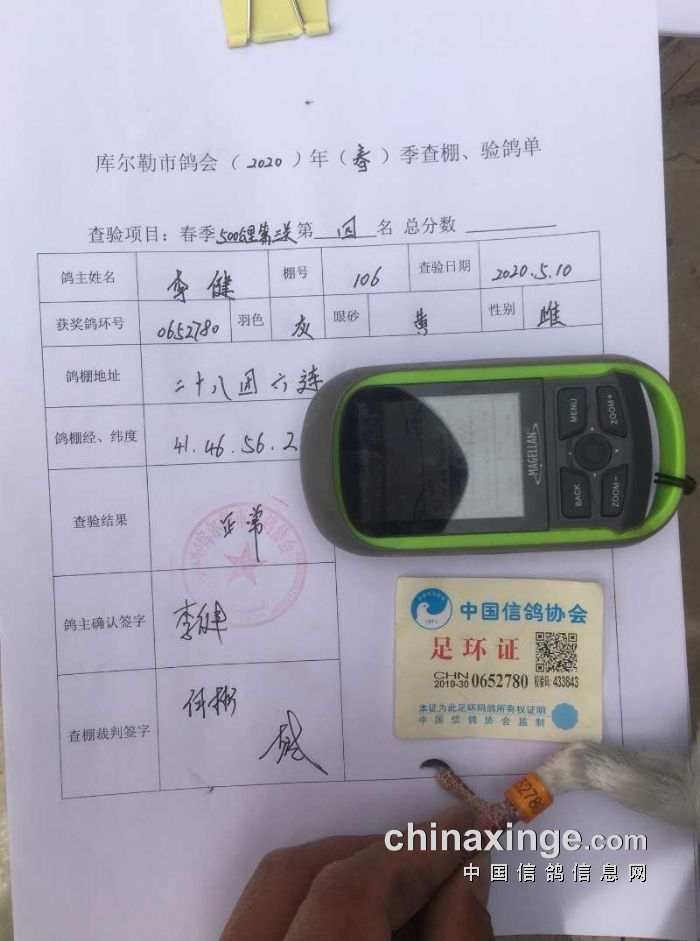 库尔勒市鸽会（2020）年（春）季查棚、验鸽单
查验项目：春季500公里第三关第 四 名 总分数
鸽主姓名 李健 棚号 106 查验日期 2020.5.10
获奖鸽环号 0652780 羽色 灰 眼砂 黄 性别 雌
鸽棚地址 二十八团六连
鸽棚经、纬度 41.46.56.2
查验结果 正常
鸽主确认签字 李健
查棚裁判签字
MAGELLAN
MENU
ZOOM+
BACK
ZOOM-
中国信鸽协会
足环证
CHN
2019-30 0652780 校验码：433843
本证为此足环码鸽所有权证明
中国信鸽协会监制
5278
chinaxinge.com
中国信鸽信息网